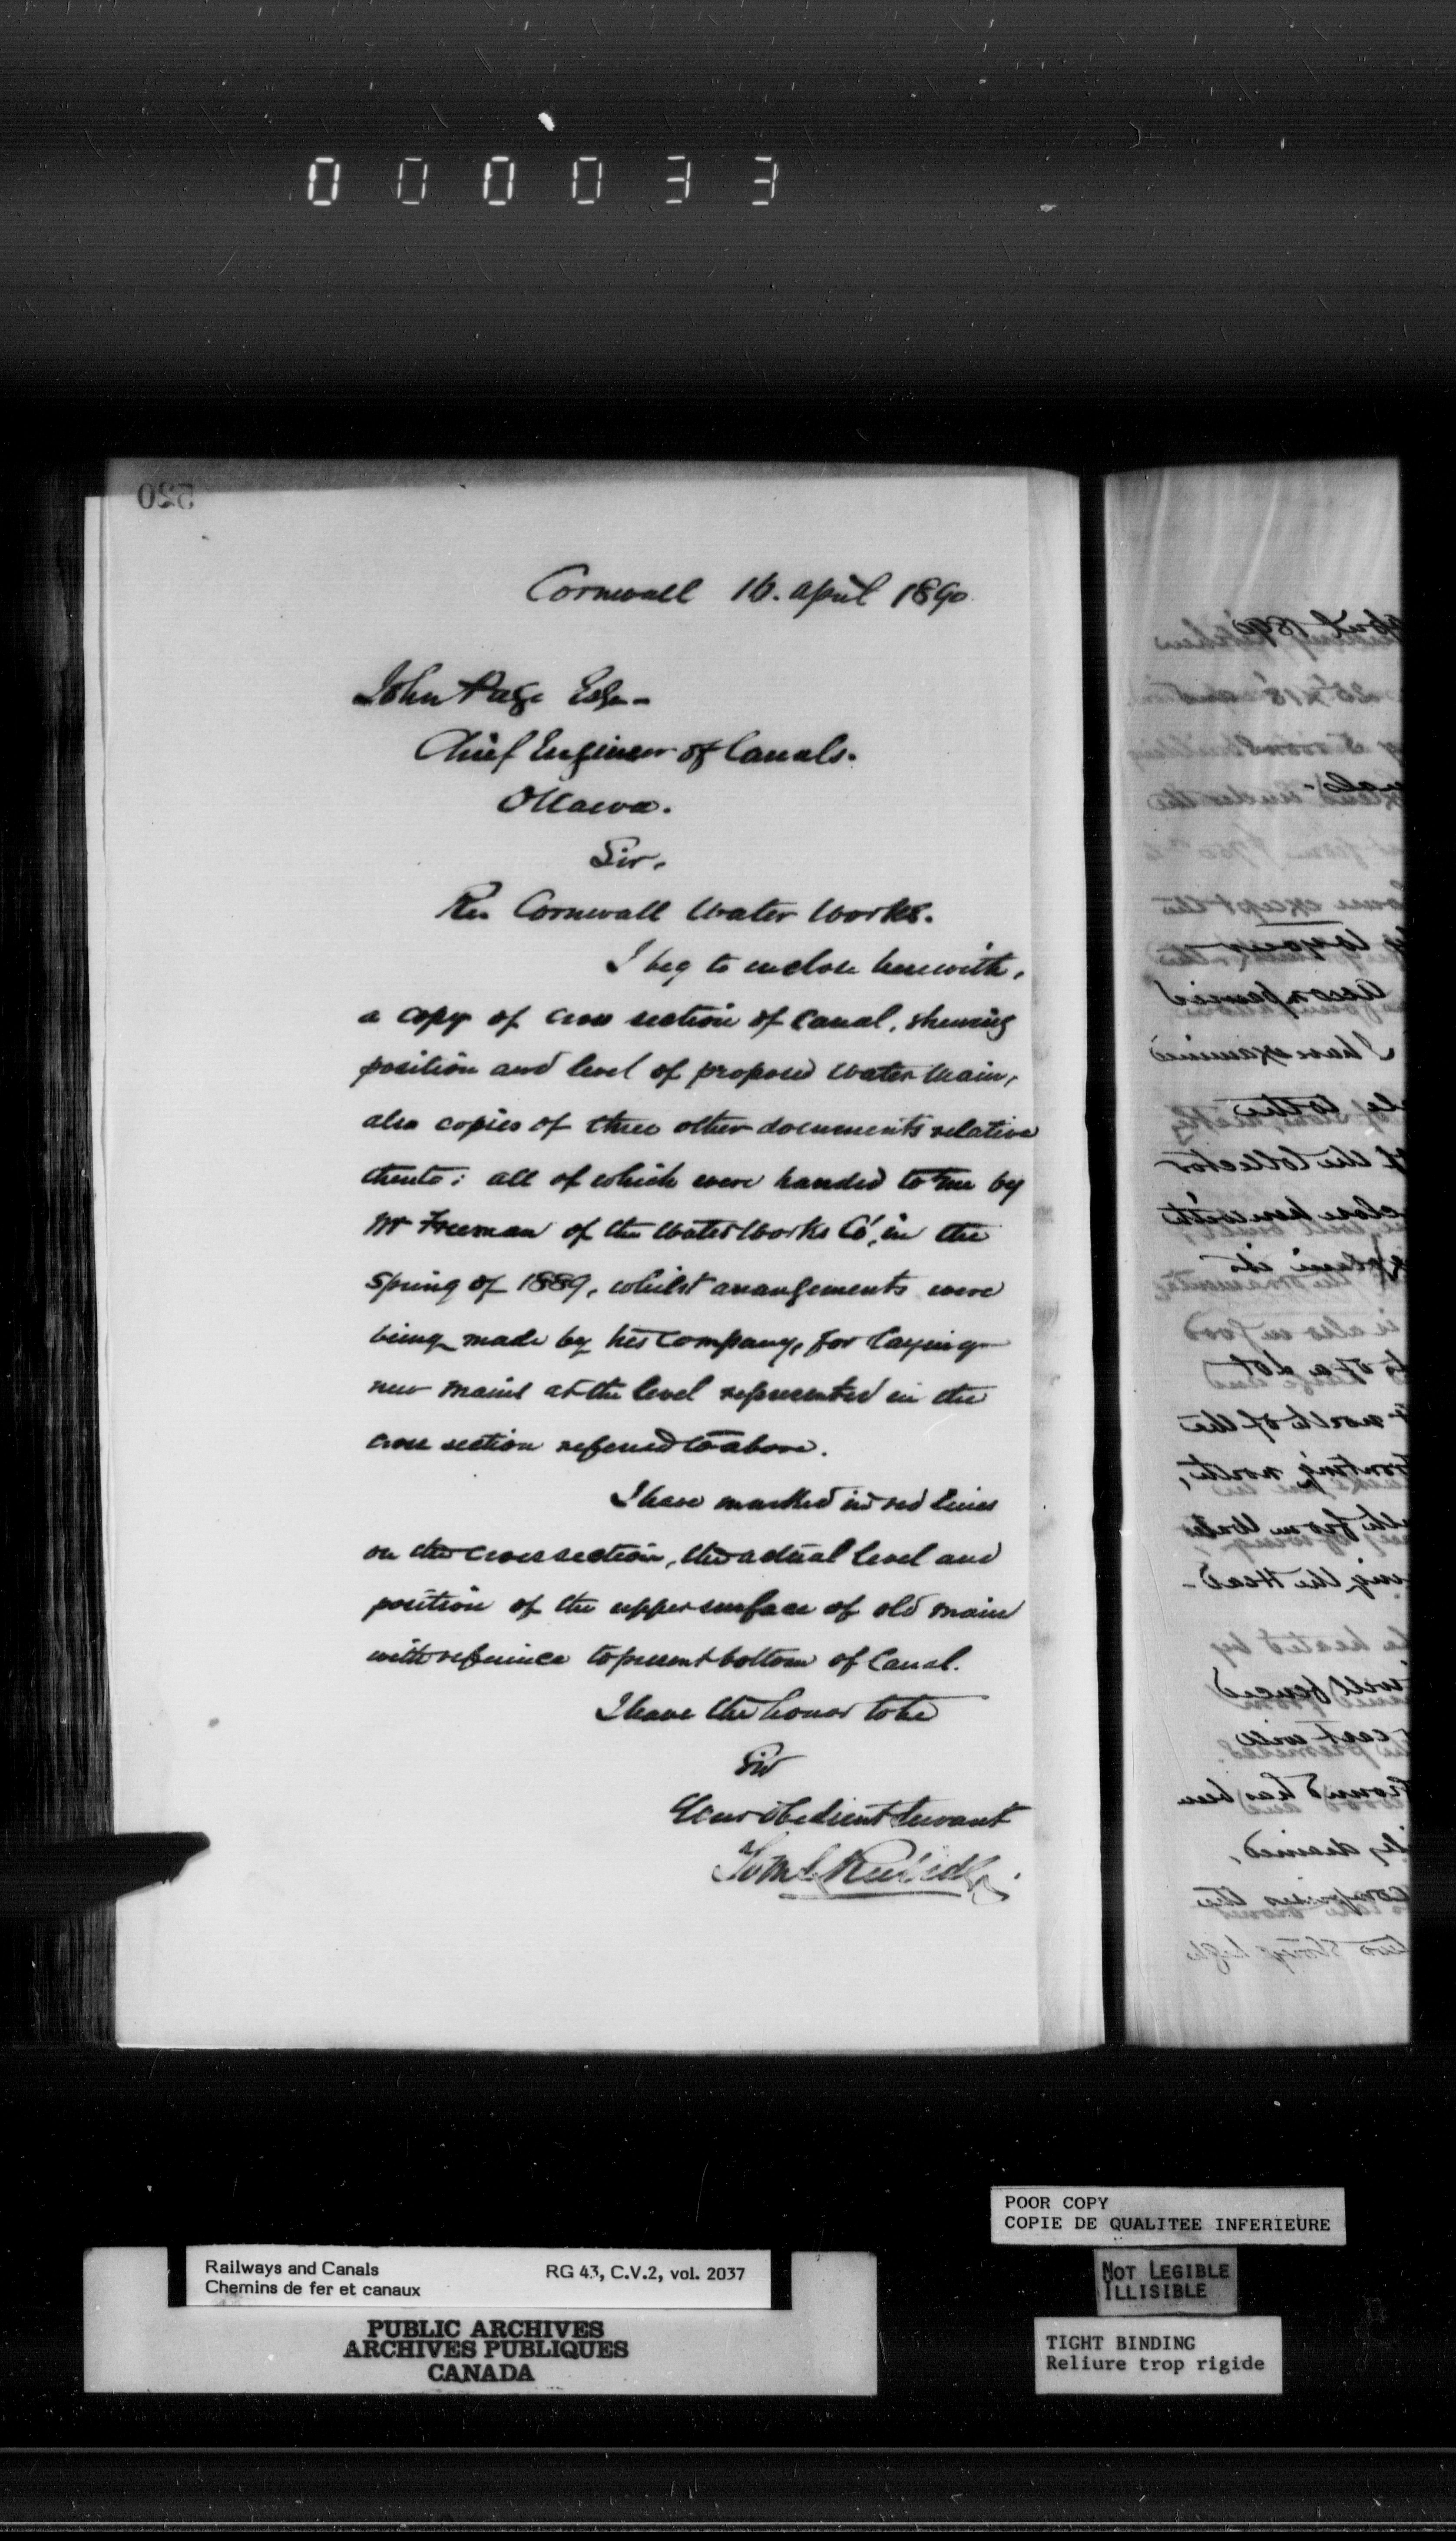 000033
520
Cornwall 16. April 1890
John Page Esqr-
Chief Engineer of Canals.
Ottawa.
Sir,
Re. Cornwall Water Works.
I beg to enclose herewith,
a copy of cross section of Canal, shewing
position and level of proposed Water Main,
also copies of three other documents relative
thereto; all of which were handed to me by
Mr Freeman of the Water Works Co', in the
Spring of 1889, whilst arrangements were
being made by his Company, for laying
new mains at the level represented in the
cross section referred to above.
I have marked in red lines
on the cross section, the actual level and
position of the upper surface of old main
with reference to present bottom of Canal.
I have the honor to be
Sir
Your obedient servant
POOR COPY
COPIE DE QUALITEE INFERIEURE
NOT LEGIBLE
ILLISIBLE
TIGHT BINDING
Reliure trop rigide
Railways and Canals
Chemins de fer et canaux
RG 43, C.V.2, vol. 2037
PUBLIC ARCHIVES
ARCHIVES PUBLIQUES
CANADA